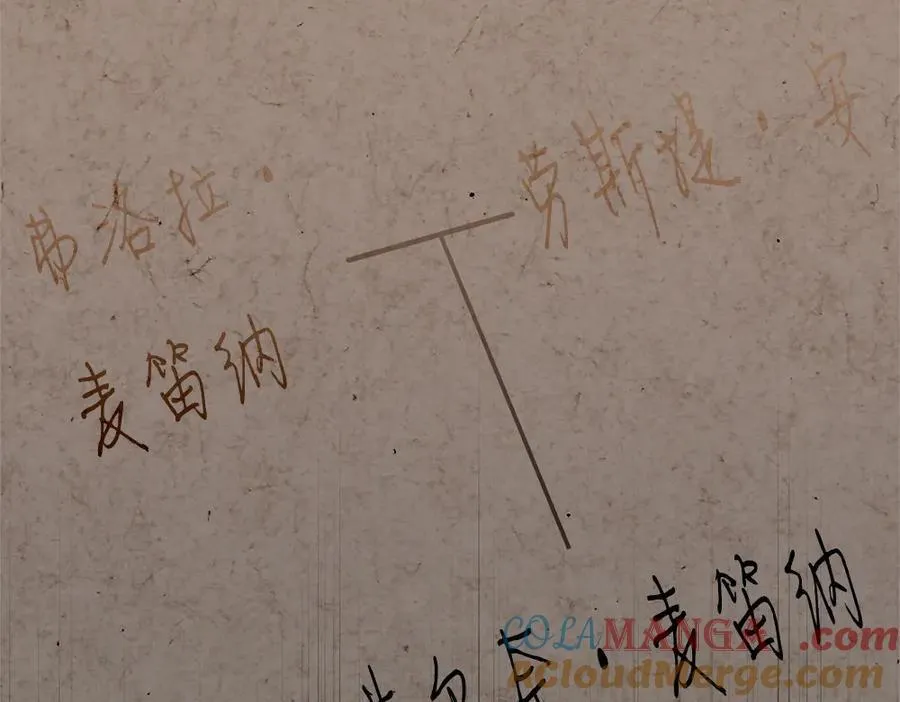 弗洛拉·
麦笛纳
劳斯堤·安
·麦笛纳
COLAMANGA.com
ACloudMerge.com